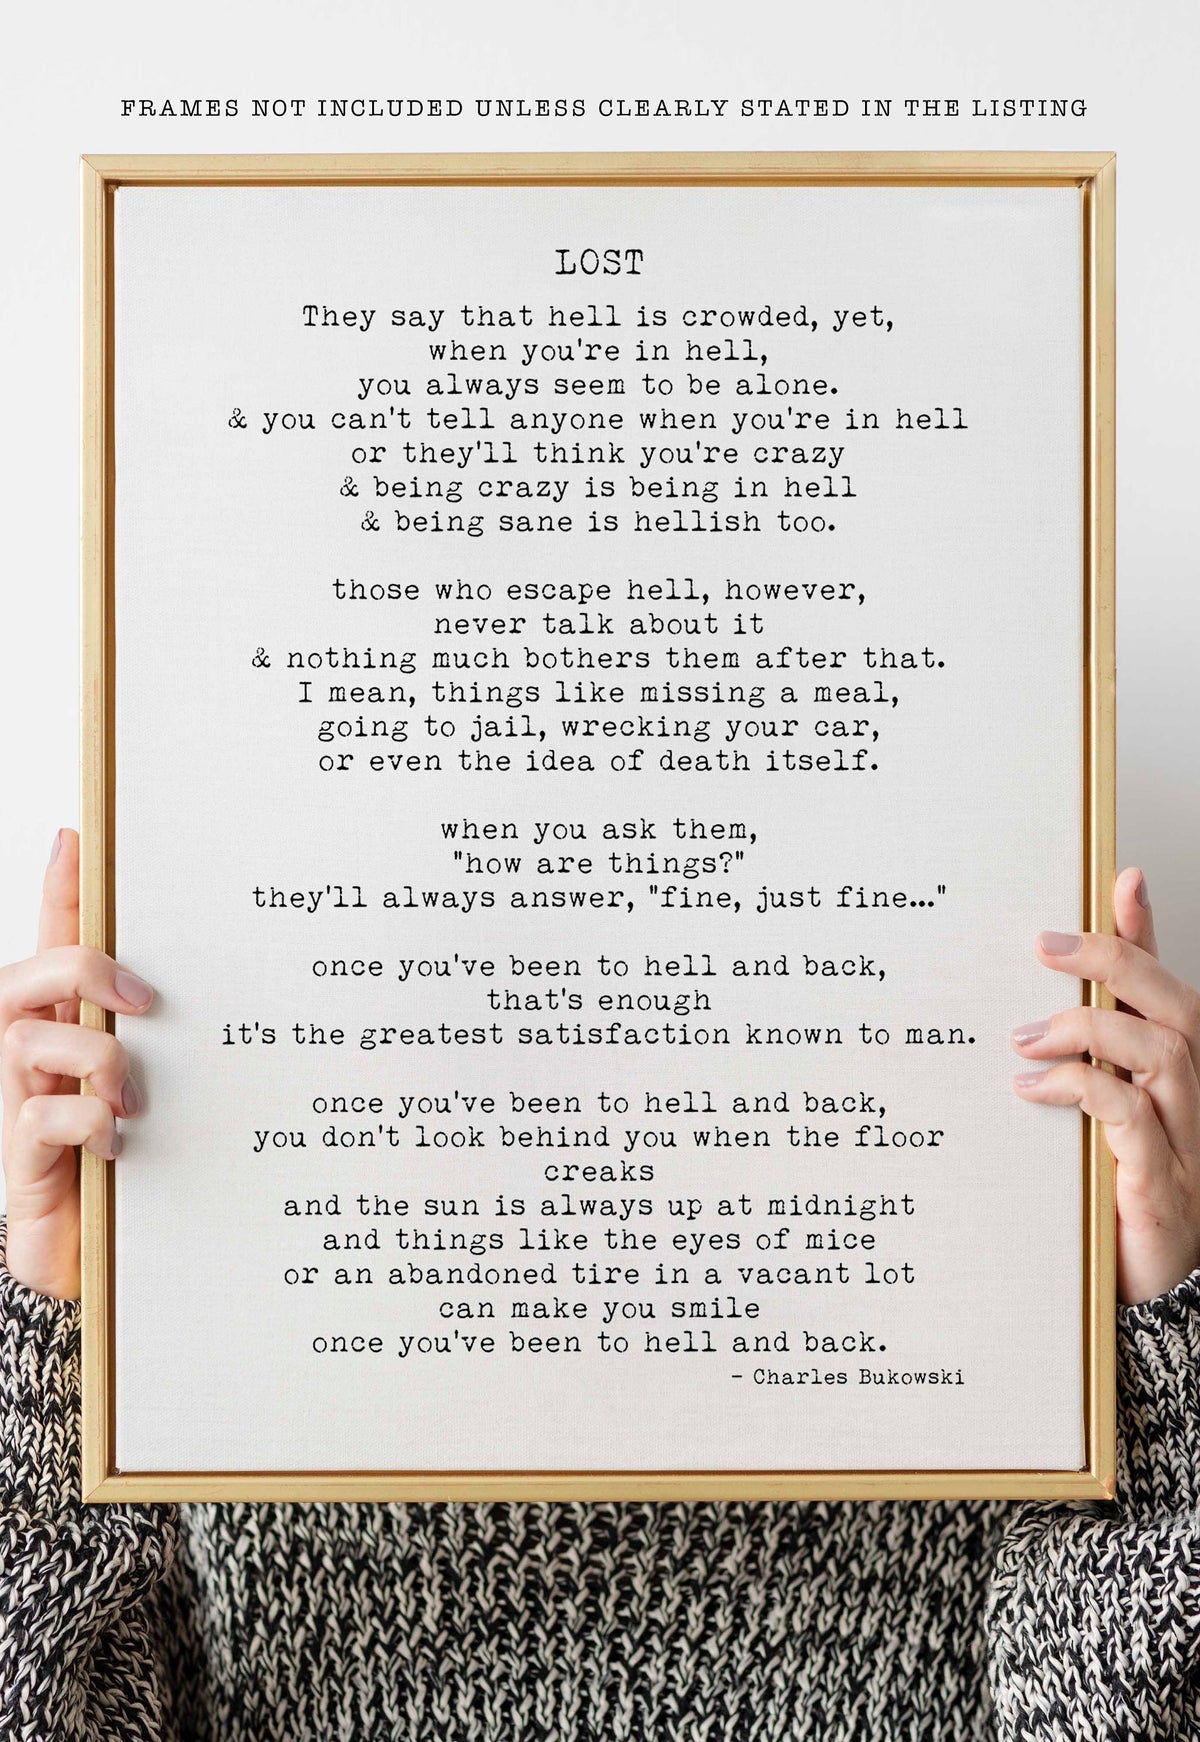 FRAMES NOT INCLUDED UNLESS CLEARLY STATED IN THE LISTING
LOST
They say that hell is crowded, yet,
when you're in hell,
you always seem to be alone.
& you can't tell anyone when you're in hell
or they'll think you're crazy
& being crazy is being in hell
& being sane is hellish too.
those who escape hell, however,
never talk about it
& nothing much bothers them after that.
I mean, things like missing a meal,
going to jail, wrecking your car,
or even the idea of death itself.
when you ask them,
"how are things?"
they'll always answer, "fine, just fine..."
once you've been to hell and back,
that's enough
it's the greatest satisfaction known to man.
once you've been to hell and back,
you don't look behind you when the floor
creaks
and the sun is always up at midnight
and things like the eyes of mice
or an abandoned tire in a vacant lot
can make you smile
once you've been to hell and back.
- Charles Bukowski